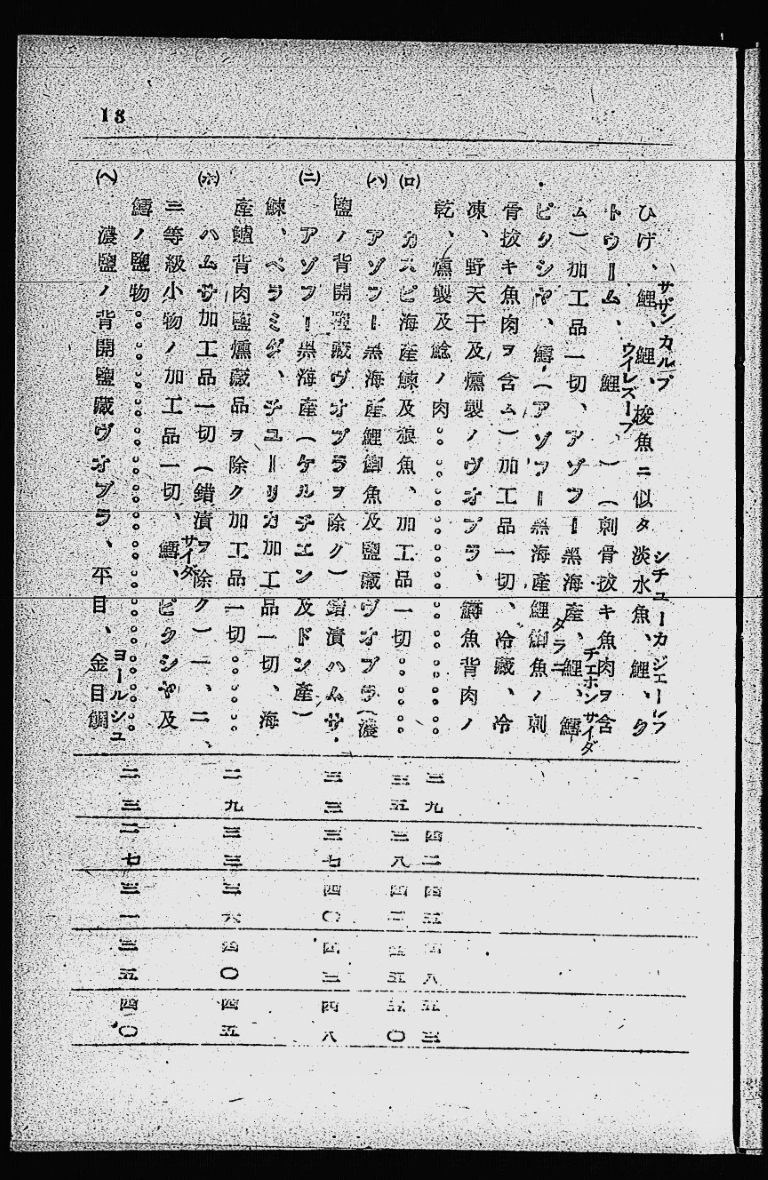 18
ひげ、鯉、鯉、梭魚ニ似タ淡水魚、鯉、ク
サザンカルプ
シチューカジェーレフ
トウーム、鯉）（刺骨拔キ魚肉ヲ含
ウイレズーブ
ム）加工品一切、アゾフー黑海産、鯉、鱈
チェホンサイダ
ピクシヤ、鱘（アゾフー黑海産鯉鯽魚ノ刺
タラニ
骨拔キ魚肉ヲ含ム）加工品一切、冷藏、冷
凍、野天干及燻製ノヴオブラ、鱘魚背肉ノ
乾、燻製及鯰ノ肉
(ロ) カスピ海産鰊及狼魚、加工品一切
(ハ) アゾフー黑海産鯉鯽魚及鹽藏ヴオブラ（濃
鹽ノ背開鹽藏ヴオブラヲ除ク）錯漬ハムサ、
(ニ) アゾフー黑海産（ケルチエン及ドン産）
鰊、ペラミダ、チユーリカ加工品一切、海
産鱸背肉鹽燻藏品ヲ除ク加工品一切
(ホ) ハムサ加工品一切（錯漬ヲ除ク）一、二、
三等級小物ノ加工品一切、鱈、ピクシヤ及
サイダ
鱈ノ鹽物
(ヘ) 濃鹽ノ背開鹽藏ヴオブラ、平目、金目鯛
ヨールシユ
三九 四二 四五 四八 五三
三五 三八 四二 四五 五〇
三三 三七 四〇 四三 四八
二九 三三 三六 四〇 四五
二三 二七 三一 三五 四〇